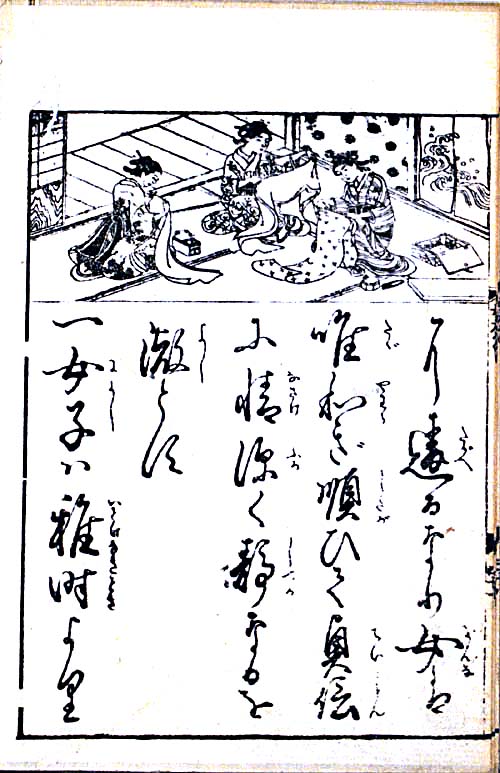 に違るなり女は
唯和ぎ順ひて貞信
に情深く静なるを
淑とす
一女子は稚時より